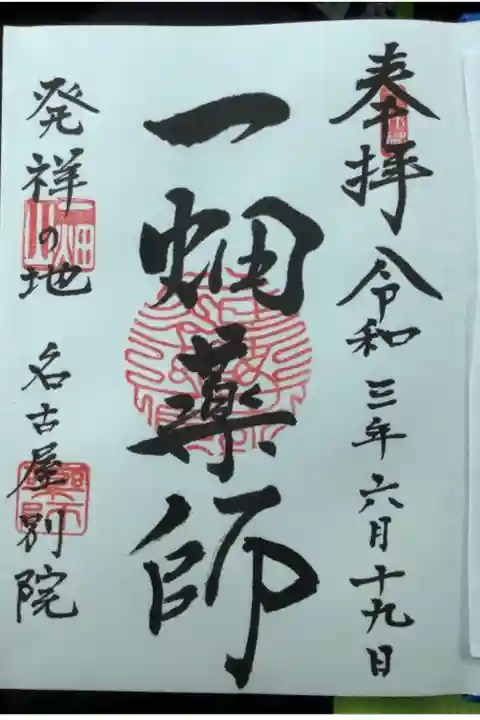 奉拝 令和三年六月十九日
一畑薬師
発祥の地 名古屋別院